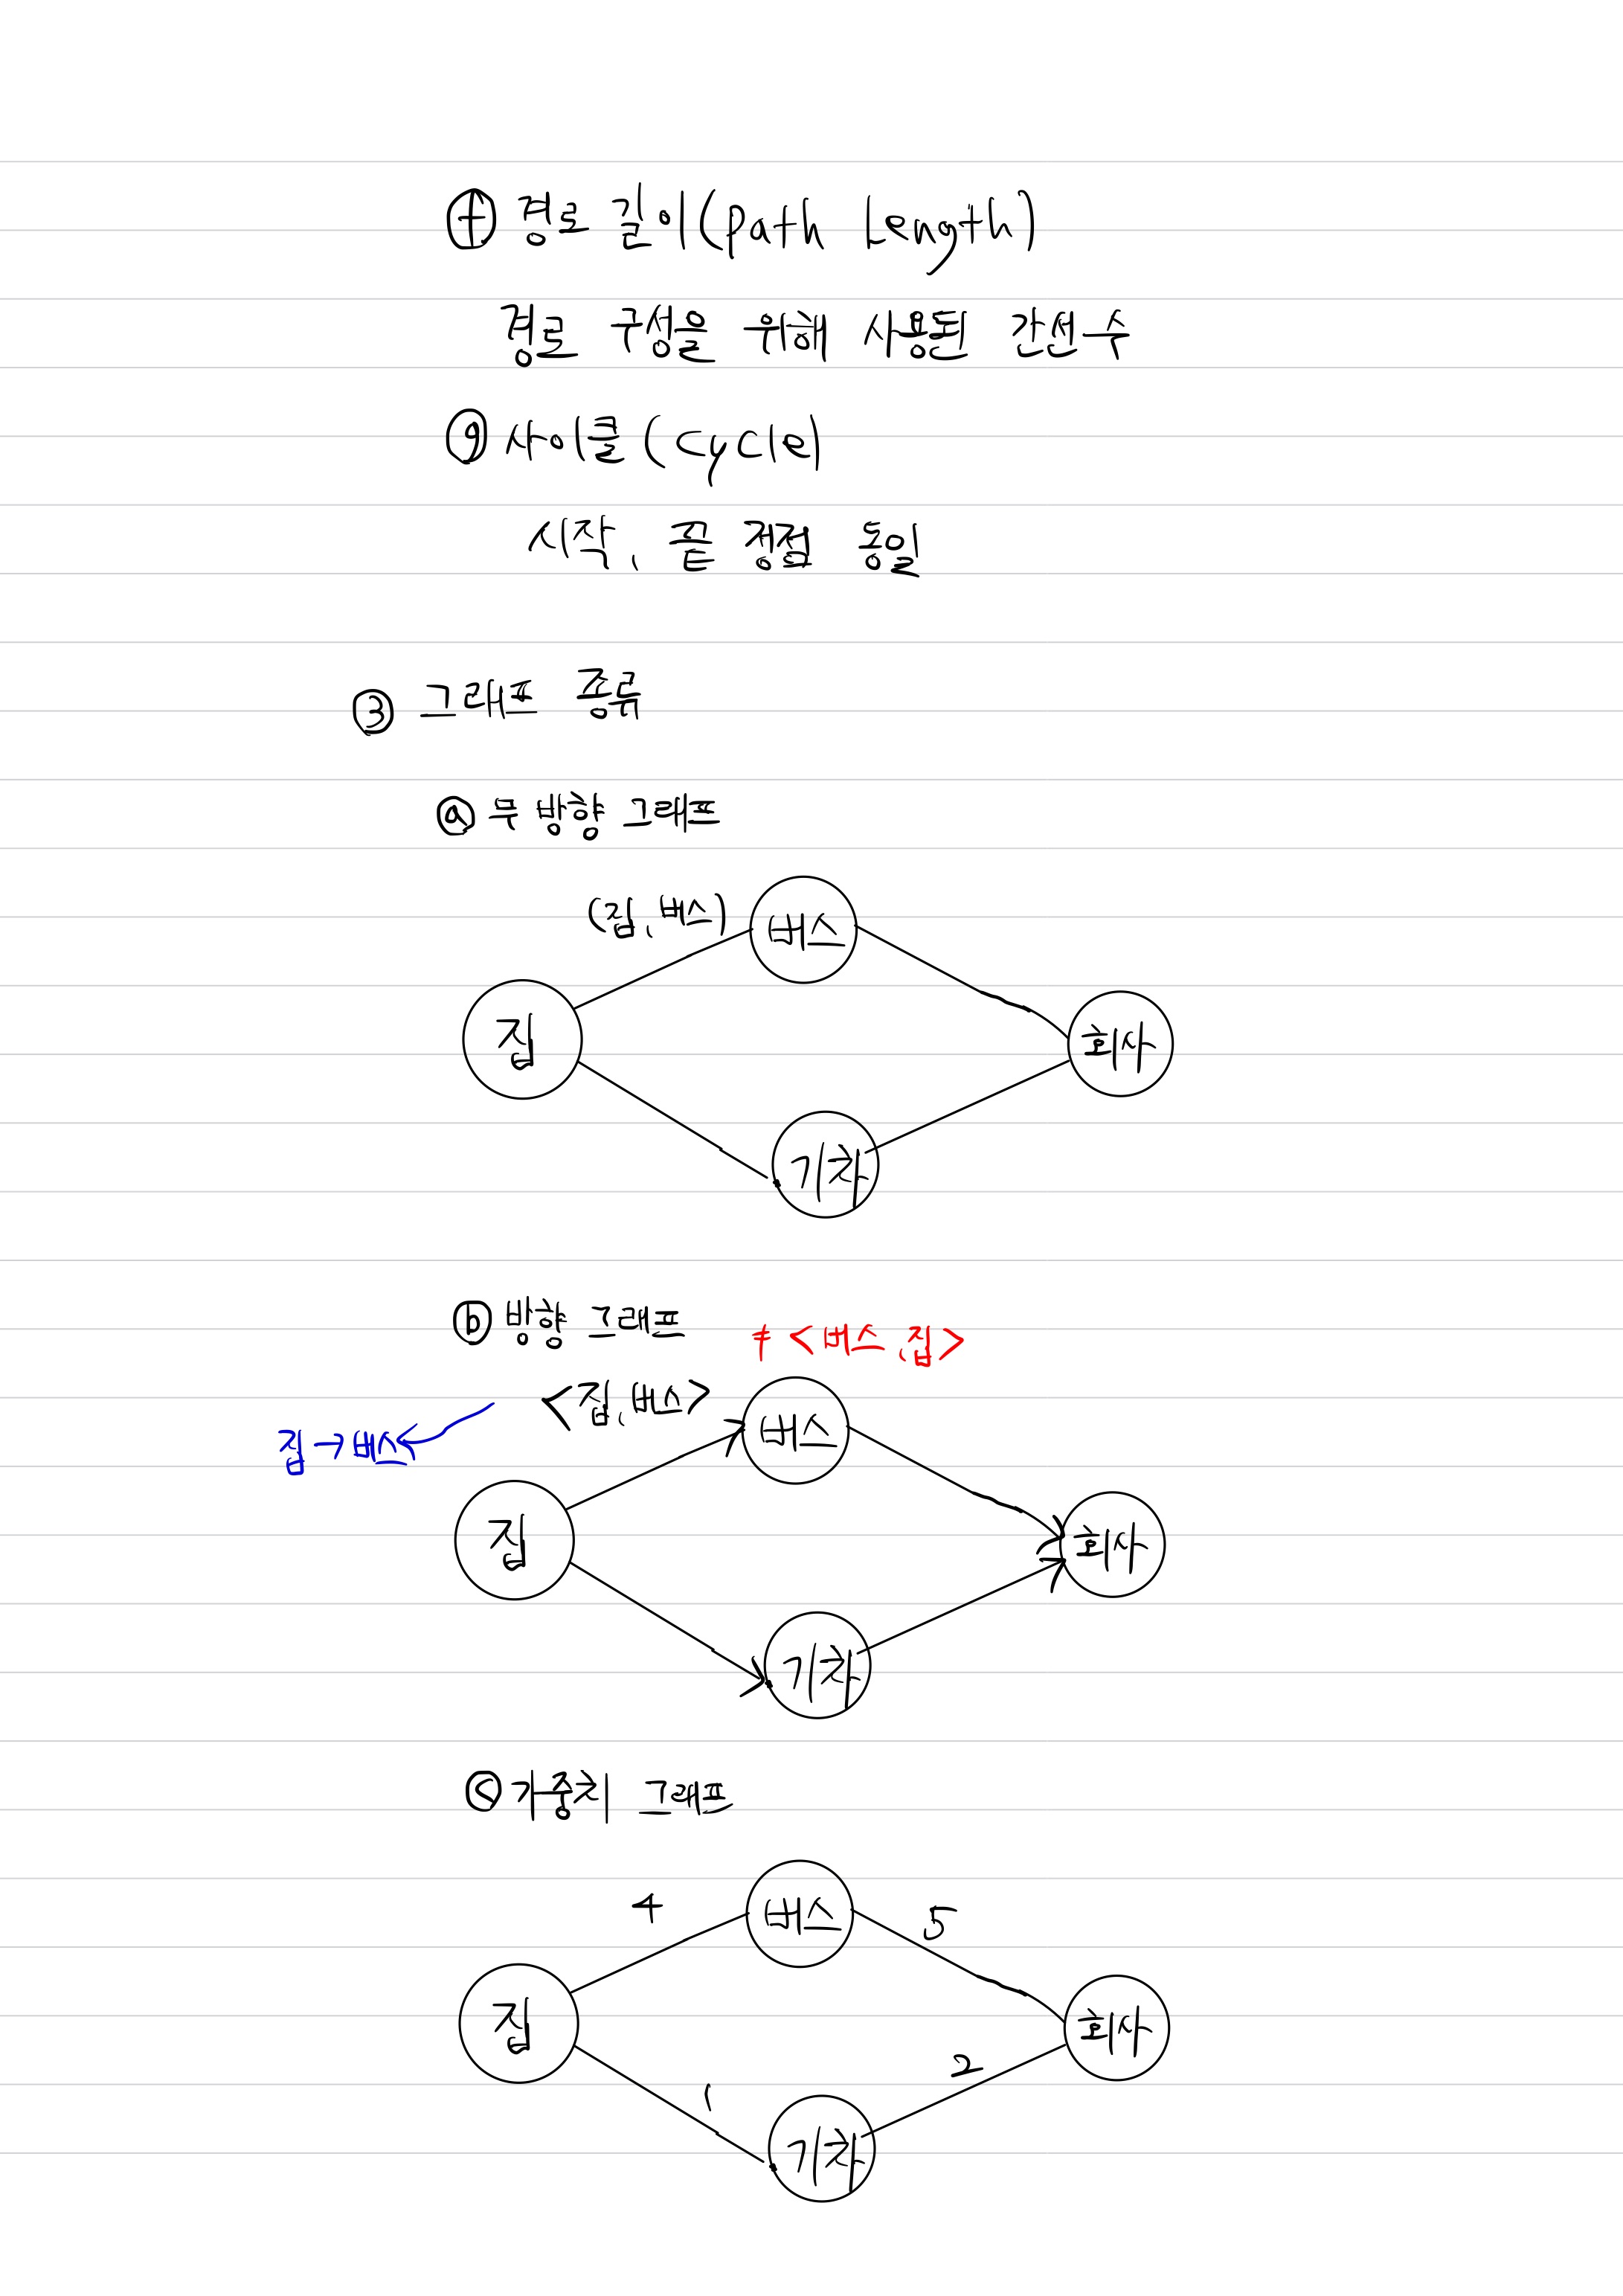 ⓕ 경로 길이(path Length)
경로 구성을 위해 사용된 간선수
ⓖ 사이클 (cycle)
시작, 끝 정점 동일
③ 그래프 종류
ⓐ 무 방향 그래프
(집, 버스)
버스
집
회사
기차
ⓑ 방향 그래프
≠ <버스, 집>
<집, 버스>
집→버스
버스
집
회사
기차
ⓒ 가중치 그래프
4
버스
5
집
회사
1
2
기차